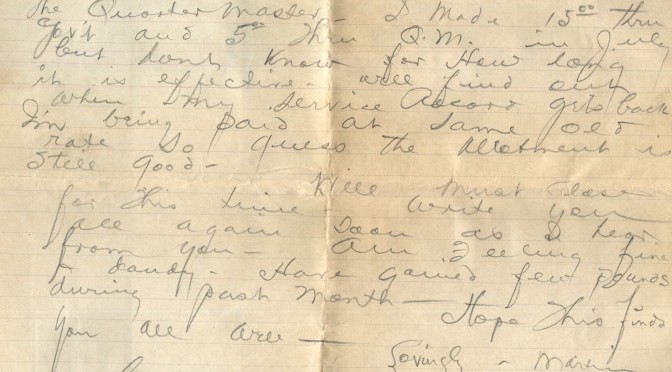 The Quartermaster - I made 15⁰⁰ thru
Gov't and 5⁰⁰ thru Q.M. in July
but don't know for How long
it is effective - will find out
when my service Record gets back
I'm being paid at same old
rate so guess the allotment is
still good -
Well must close
for this time write you
all again soon as I hear
from you - Am feeling fine
& dandy - Have gained few pounds
during past month - Hope this finds
you all are -
Lovingly -